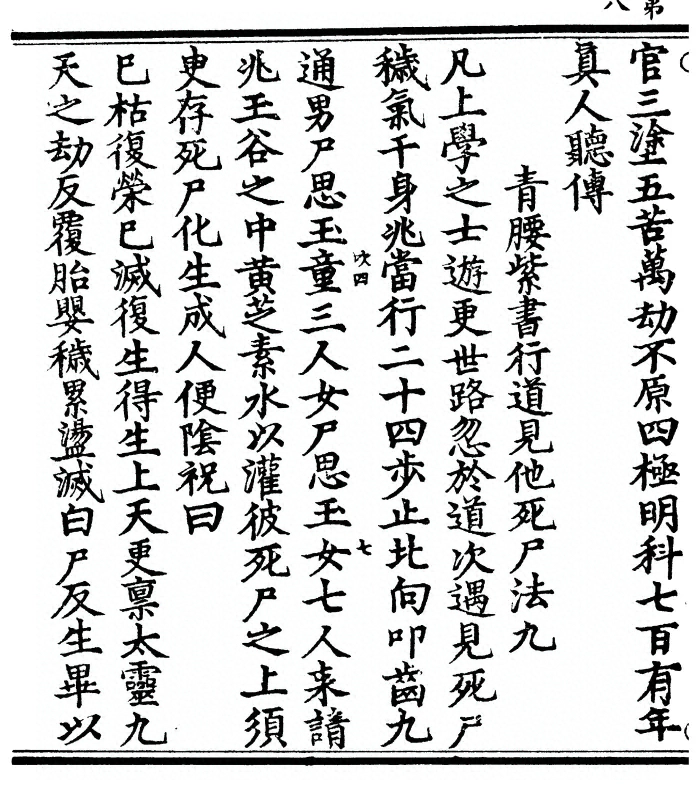 第八
官三塗五苦萬劫不原四極明科七百有年
真人聽傳
青腰紫書行道見他死尸法九
凡上學之士遊更世路忽於道次遇見死尸
穢氣干身兆當行二十四步止北向叩齒九
通男尸思玉童三人女尸思玉女七人来詣
次四
七
兆玉谷之中黄芝素水以灌彼死尸之上須
臾存死尸化生成人便陰祝曰
已枯復榮已滅復生得生上天更稟太靈九
天之劫反覆胎嬰穢累盪滅白尸反生畢以